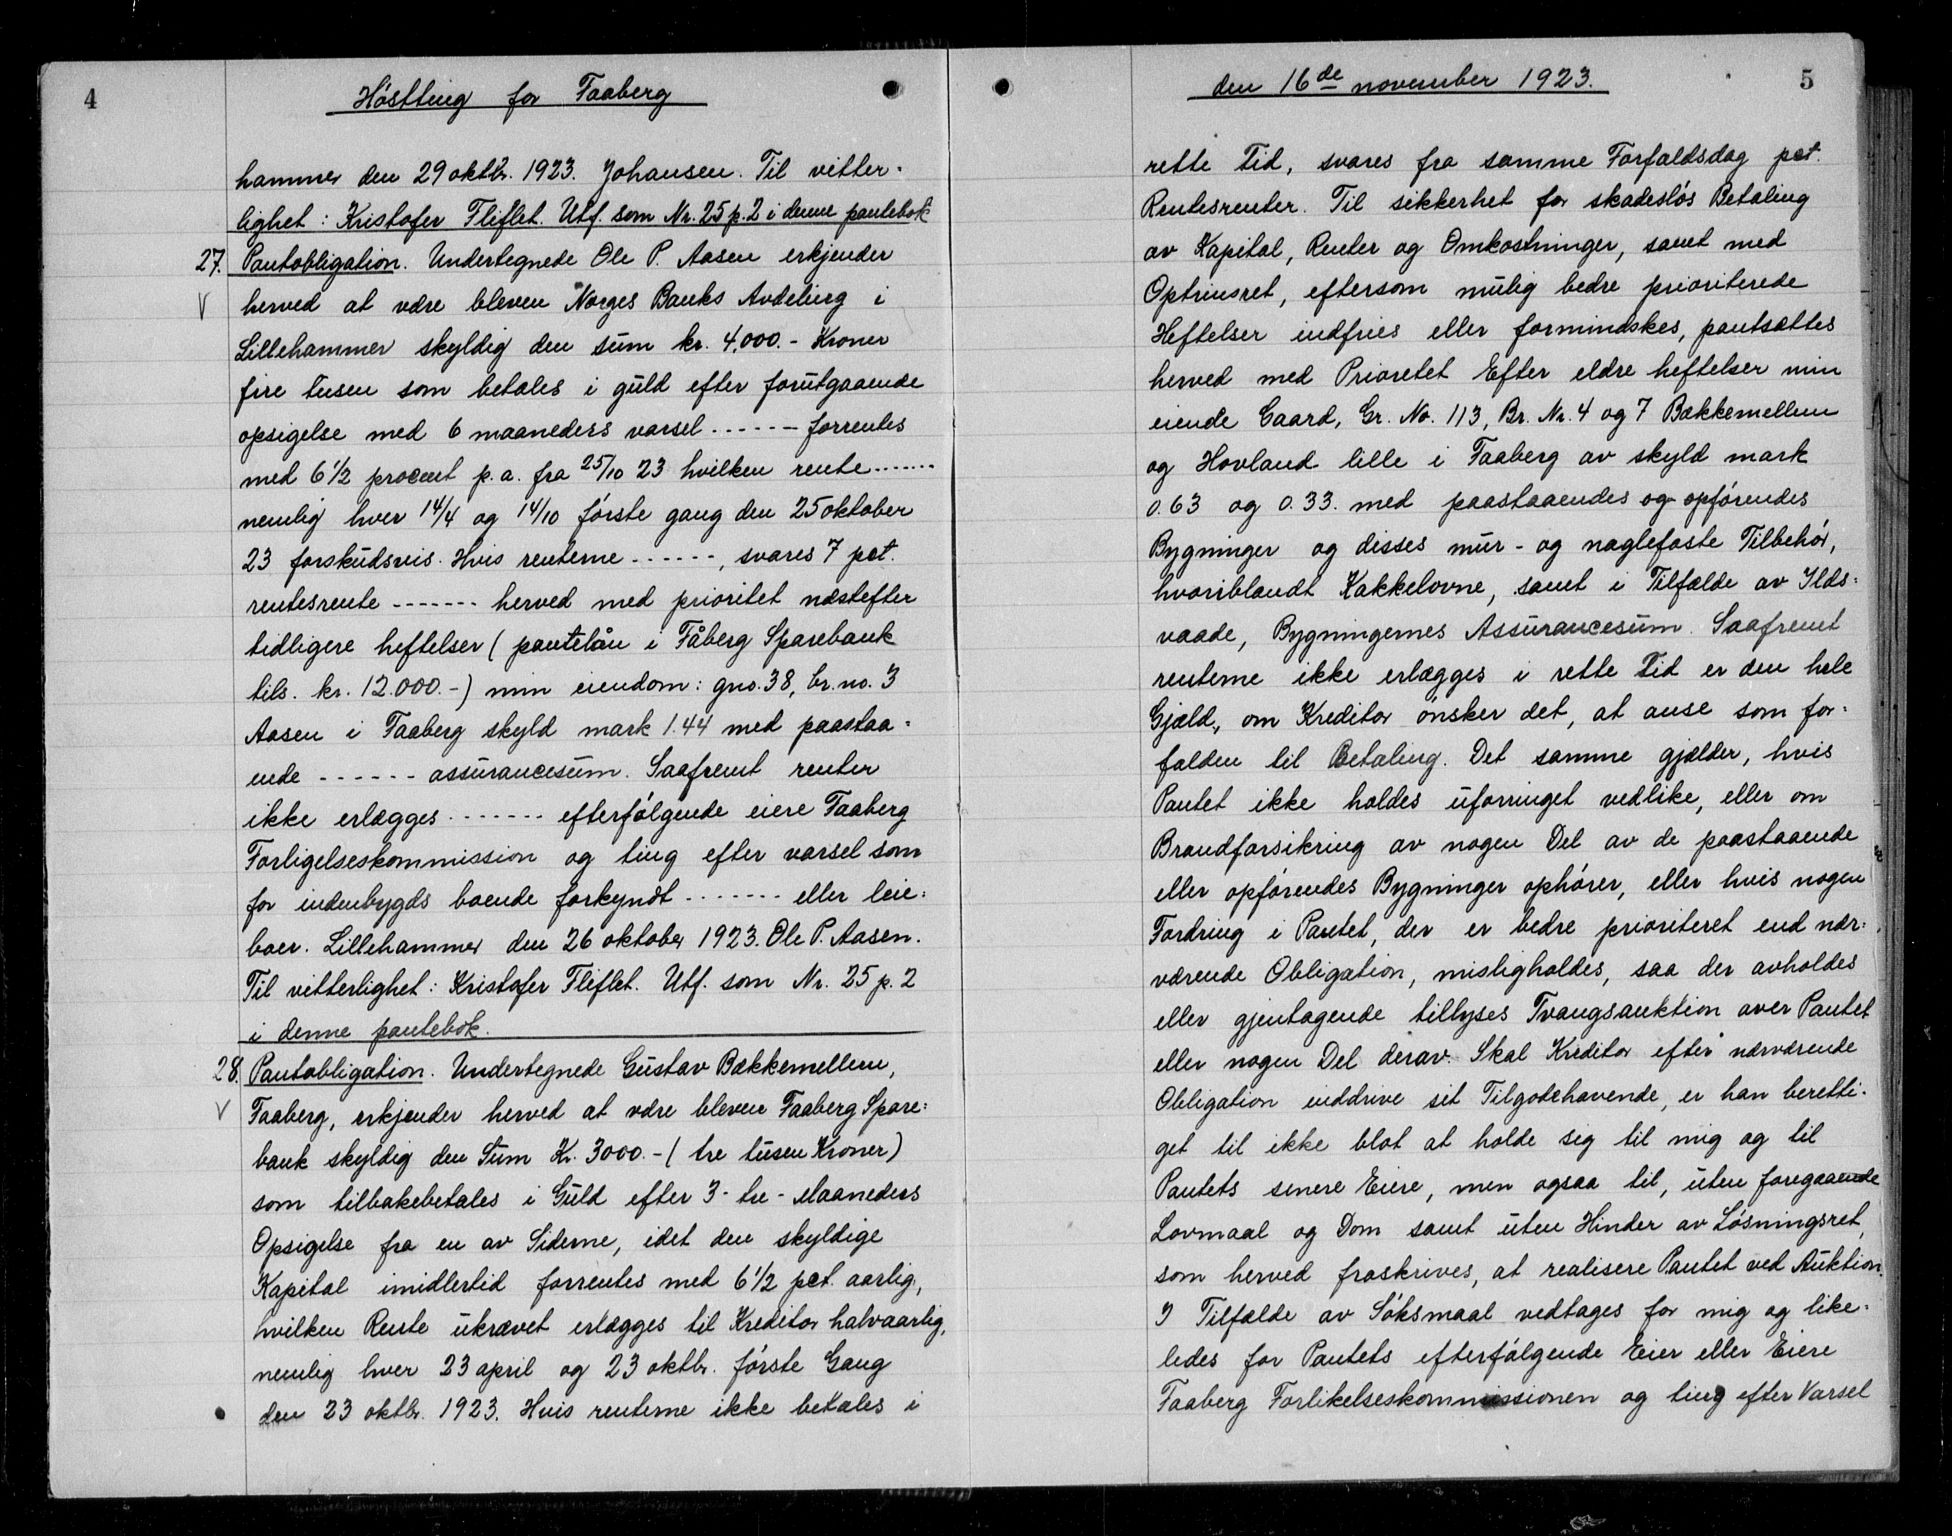 4
Høstting for Faaberg
hammer den 29 oktbr. 1923. Johansen. Til vitter-
lighet: Kristofer Fliflet. Utf. som Nr. 25 p. 2 i denne pantebok
27. Pantobligation. Undertegnede Ole P. Aasen erkjender
herved at være bleven Norges Banks Avdeling i
Lillehammer skyldig den sum kr. 4.000.- Kroner
fire tusen som betales i guld efter forutgaaende
opsigelse med 6 maaneders varsel ------ forrentes
med 6 1/2 procent p.a. fra 25/10 23 hvilken rente -------
nemlig hver 14/4 og 14/10 første gang den 25 oktober
23 forskudsvis. Hvis renterne ------, svares 7 pct.
rentesrente ------- herved med prioritet næstefter
tidligere heftelser (pantelån i Fåberg Sparebank
tils. kr. 12.000.-) min eiendom: gno. 38, br. no. 3
Aasen i Faaberg skyld mark 1.44 med paastaa-
ende ------ assurancesum. Saafremt renter
ikke erlægges ------- efterfølgende eiere Faaberg
Forligelseskommission og ting efter varsel som
for indenbygds boende forkyndt ------- eller leie-
boer. Lillehammer den 26 oktober 1923. Ole P. Aasen.
Til vitterlighet: Kristofer Fliflet. Utf. som Nr. 25 p. 2
i denne pantebok.
28. Pantobligation. Undertegnede Gustav Bækkemellem,
Faaberg, erkjender herved at være bleven Faaberg Spare-
bank skyldig den Sum Kr. 3000.- (tre tusen Kroner)
som tilbakebetales i Guld efter 3- tre- Maaneders
Opsigelse fra en av Siderne, idet den skyldige
Kapital imidlertid forrentes med 6 1/2 pct. aarlig,
hvilken Rente ukrævet erlægges til Kreditor halvaarlig,
nemlig hver 23 april og 23 oktbr. første Gang
den 23 oktbr. 1923. Hvis renterne ikke betales i
den 16de november 1923.
5
rette Tid, svares fra samme Forfaldsdag pct.
Rentesrenter. Til sikkerhet for skadesløs Betaling
av Kapital, Renter og Omkostninger, samt med
Optrinsret, eftersom mulig bedre prioriterede
Heftelser indfries eller formindskes, pantsættes
herved med Prioretet Efter eldre heftelser min
eiende Gaard, Gr. No. 113, Br. Nr. 4 og 7 Bækkemellem
og Hovland lille i Faaberg av skyld mark
0.63 og 0.33. med paastaaendes og opførendes
Bygninger og disses mur- og naglefaste Tilbehør,
hvoriblandt Kakkelovne, samt i Tilfælde av Ilds-
vaade, Bygningernes Assurancesum. Saafremt
renterne ikke erlægges i rette Tid er den hele
Gjæld, om Kreditor ønsker det, at anse som for-
falden til Betaling. Det samme gjælder, hvis
Pantet ikke holdes uforringet vedlike, eller om
Brandforsikring av nogen Del av de paastaaende
eller opførendes Bygninger ophører, eller hvis nogen
Fordring i Pantet, der er bedre prioriteret end nær-
værende Obligation, misligholdes, saa der avholdes
eller gjentagende tillyses Tvangsauktion over Pantet
eller nogen Del derav. Skal Kreditor efter nærværende
Obligation inddrive sit Tilgodehavende, er han beretti-
get til ikke blot at holde sig til mig og til
Pantets senere Eiere, men ogsaa til, uten foregaaende
Lovmaal og Dom samt uten Hinder av Løsningsret,
som herved fraskrives, at realisere Pantet ved Auktion.
I Tilfælde av Søksmaal vedtages for mig og like-
ledes for Pantets efterfølgende Eier eller Eiere
Faaberg Forlikelseskommissionen og ting efter Varsel